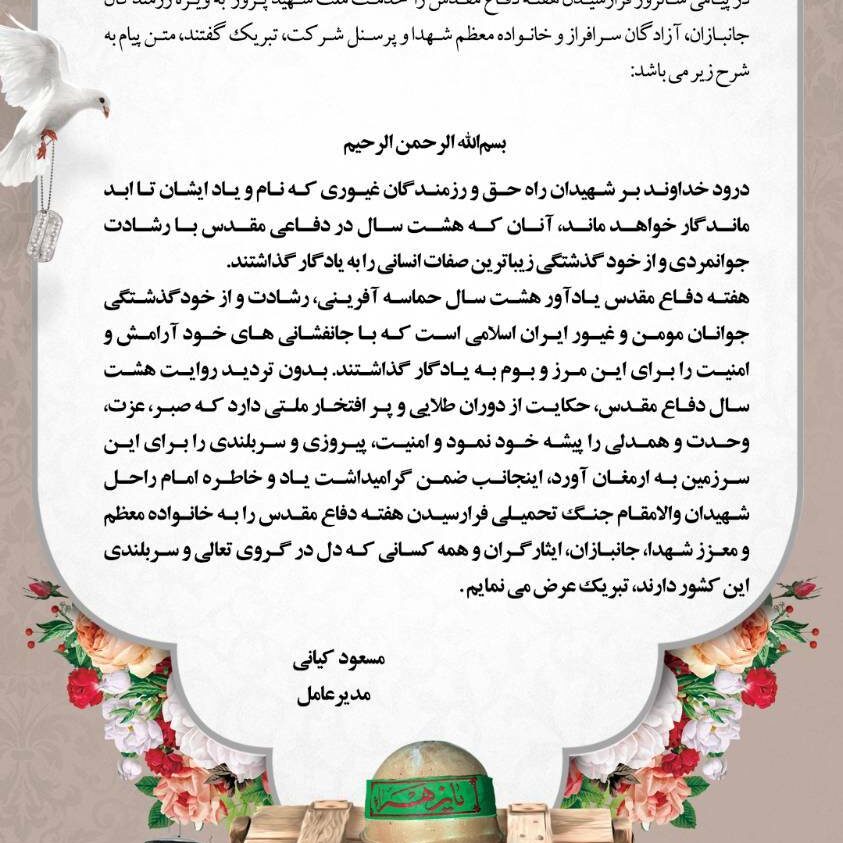 در پیامی سالروز فرارسیدن هفته دفاع مقدس را خدمت ملت شهید پرور به ویژه رزمندگان
جانبازان، آزادگان سرافراز و خانواده معظم شهدا و پرسنل شرکت، تبریک گفتند، متن پیام به
شرح زیر می باشد:
بسم‌الله الرحمن الرحیم
درود خداوند بر شهیدان راه حق و رزمندگان غیوری که نام و یاد ایشان تا ابد
ماندگار خواهد ماند، آنان که هشت سال در دفاعی مقدس با رشادت
جوانمردی و از خود گذشتگی زیباترین صفات انسانی را به یادگار گذاشتند.
هفته دفاع مقدس یادآور هشت سال حماسه آفرینی، رشادت و از خودگذشتگی
جوانان مومن و غیور ایران اسلامی است که با جانفشانی های خود آرامش و
امنیت را برای این مرز و بوم به یادگار گذاشتند. بدون تردید روایت هشت
سال دفاع مقدس، حکایت از دوران طلایی و پر افتخار ملتی دارد که صبر، عزت،
وحدت و همدلی را پیشه خود نمود و امنیت، پیروزی و سربلندی را برای این
سرزمین به ارمغان آورد، اینجانب ضمن گرامیداشت یاد و خاطره امام راحل
شهیدان والامقام جنگ تحمیلی فرارسیدن هفته دفاع مقدس را به خانواده معظم
و معزز شهدا، جانبازان، ایثارگران و همه کسانی که دل در گروی تعالی و سربلندی
این کشور دارند، تبریک عرض می نمایم.
مسعود کیانی
مدیرعامل
یا زهرا